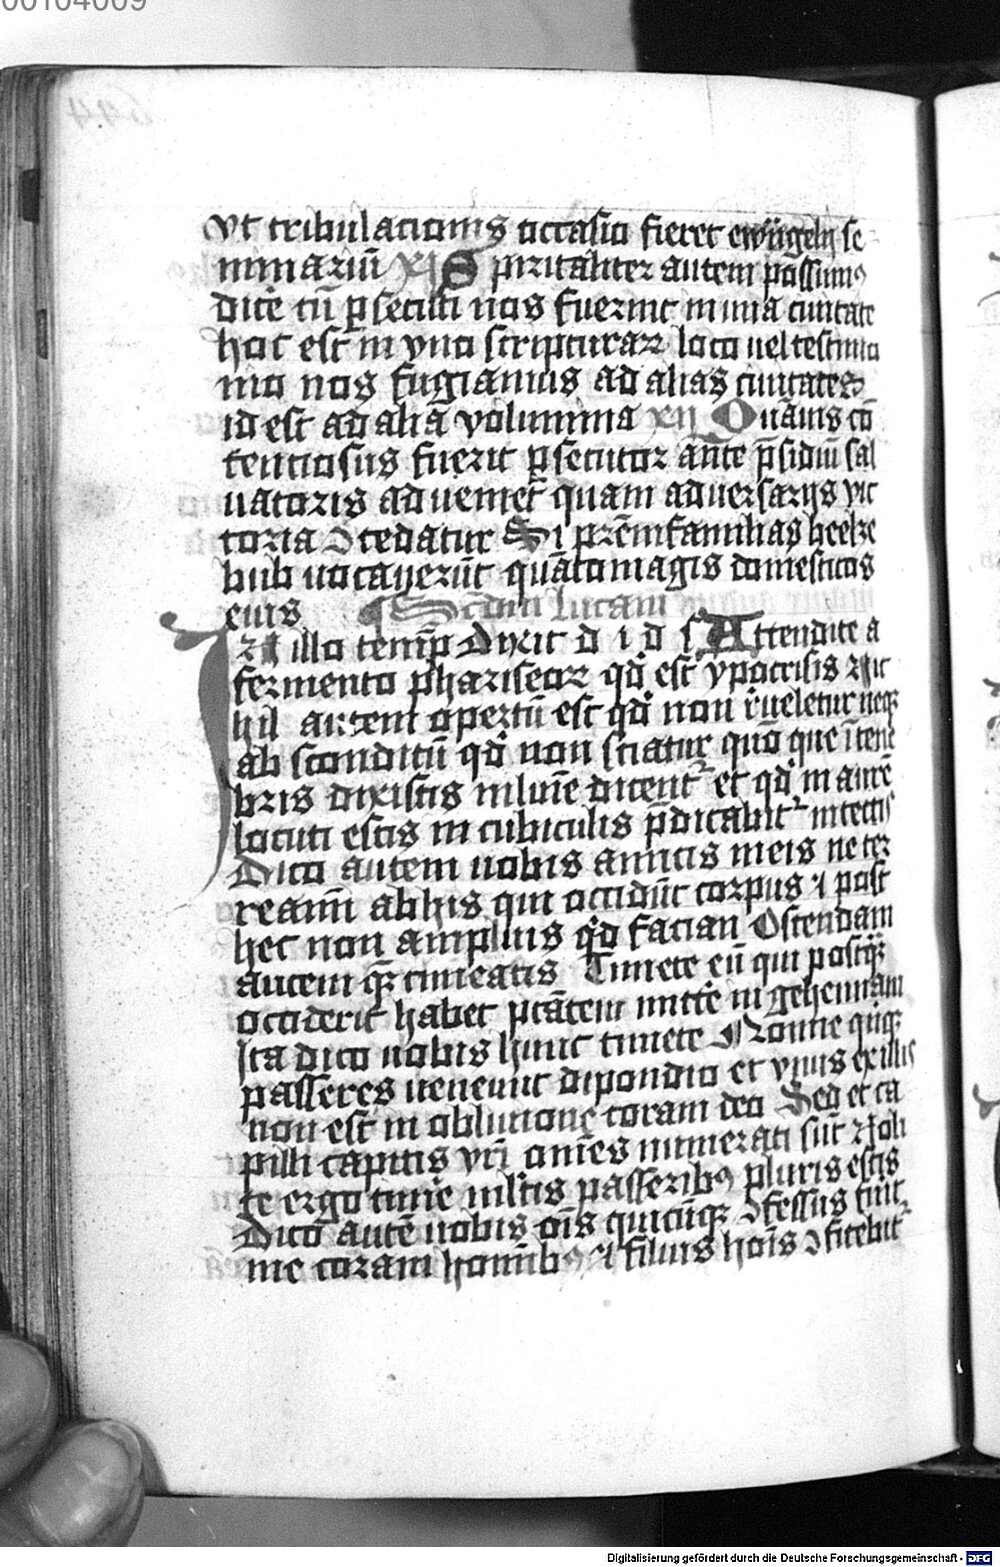 00104009
vt tribulacionis occasio fieret ewůgelij se
minariū XI Spiritaliter autem possumꝰ
dicẽ cū ꝑsecuti nos fuerint in una ciuitate
hoc est in vno scripturarꝝ loco uel testimo
nio nos fugiamus ad alias ciuitates
id est ad alia volumina xij Quāuis cō
tenciosus fuerit ꝑsecutor ante p̄sidiū sal
uatoris adueniet quam aduersarijs vic
toria ꝯcedatur Si prēmfamilias beelze
bub uocauerūt quāto magis domesticos
eius ¶ Scdm lucam
In illo temꝑ dixit d i d s Attendite a
fermento phariseorꝝ qd est ypocrisis Nic
hil autem opertū est qd non rēueletur neqꝫ
absconditū qd non sciatur quō que ī tene
bris dixistis in lumē dicentᷣ et qd in aurē
locuti estis in cubiculis p̄dicabitᷣ in tectis
Dico autem uobis amicis meis ne ter
reamī ab his qui occidūt corpus ⁊ post
hec non amplius qd facian Ostendam
autem qꝫ timeatis Timete eū qui postqꝫ
occiderit habet ptātem mittẽ in gehennam
Ita dico uobis hunc timete Nonne qīqꝫ
passeres ueneunt dipondio et vnus ex illis
non est in obliuione coram deo Sed et ca
pilli capitis vrī omēs numerati sūt Noli
te ergo timẽ multis passeribꝰ pluris estis
Dico autē uobis oīs quicūqꝫ ꝯfessus fuit
me coram homībꝰ ⁊ filius hoīs ꝯfitebitᷣ
Digitalisierung gefördert durch die Deutsche Forschungsgemeinschaft - DFG